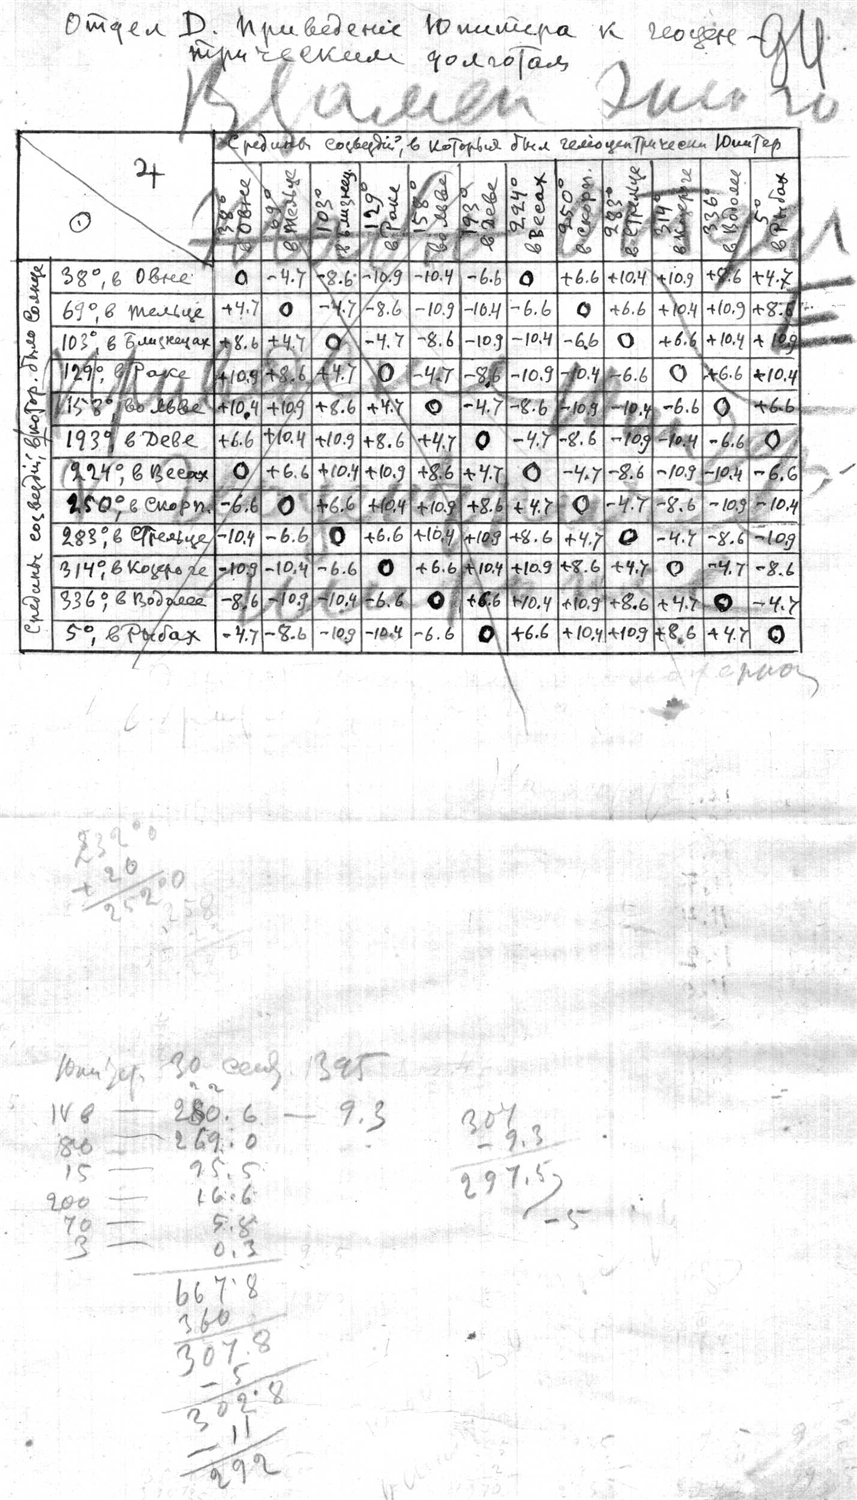 Отдел D. Приведеніе Юпитера к геоцен-
трическим долготам
Взамен этого
♃
☉
Средины созвездій, в которыя был геліоцентрически Юпитер
38° в Овне 69° в Тельце 103° в Близнец. 129° в Раке 158° во Льве 193° в Деве 224° в Весах 250° в Скорп. 283° в Стрельце 314° в Козероге 336° в Водолее 5° в Рыбах
Средины созвездій, в котор. было Солнце
38°, в Овне 0 -4.7 -8.6 -10.9 -10.4 -6.6 0 +6.6 +10.4 +10.9 +8.6 +4.7
69°, в Тельце +4.7 0 -4.7 -8.6 -10.9 -10.4 -6.6 0 +6.6 +10.4 +10.9 +8.6
103°, в Близнецах +8.6 +4.7 0 -4.7 -8.6 -10.9 -10.4 -6.6 0 +6.6 +10.4 +10.9
129°, в Раке +10.9 +8.6 +4.7 0 -4.7 -8.6 -10.9 -10.4 -6.6 0 +6.6 +10.4
158°, во Льве +10.4 +10.9 +8.6 +4.7 0 -4.7 -8.6 -10.9 -10.4 -6.6 0 +6.6
193° в Деве +6.6 +10.4 +10.9 +8.6 +4.7 0 -4.7 -8.6 -10.9 -10.4 -6.6 0
224°, в Весах 0 +6.6 +10.4 +10.9 +8.6 +4.7 0 -4.7 -8.6 -10.9 -10.4 -6.6
250°, в Скорп. -6.6 0 +6.6 +10.4 +10.9 +8.6 +4.7 0 -4.7 -8.6 -10.9 -10.4
283° в Стрельце -10.4 -6.6 0 +6.6 +10.4 +10.9 +8.6 +4.7 0 -4.7 -8.6 -10.9
314°, в Козероге -10.9 -10.4 -6.6 0 +6.6 +10.4 +10.9 +8.6 +4.7 0 -4.7 -8.6
336°, в Водолее -8.6 -10.9 -10.4 -6.6 0 +6.6 +10.4 +10.9 +8.6 +4.7 0 -4.7
5°, в Рыбах -4.7 -8.6 -10.9 -10.4 -6.6 0 +6.6 +10.4 +10.9 +8.6 +4.7 0
232°0
+20
252°0
258
Юпитер 30 сент. 1395
148 — 280.6 — 9.3
80 — 269.0
15 — 95.5
200 — 16.6
70 — 5.8
3 — 0.3
667.8
360
307.8
-5
302.8
-11
292
307
-9.3
297.5
-5